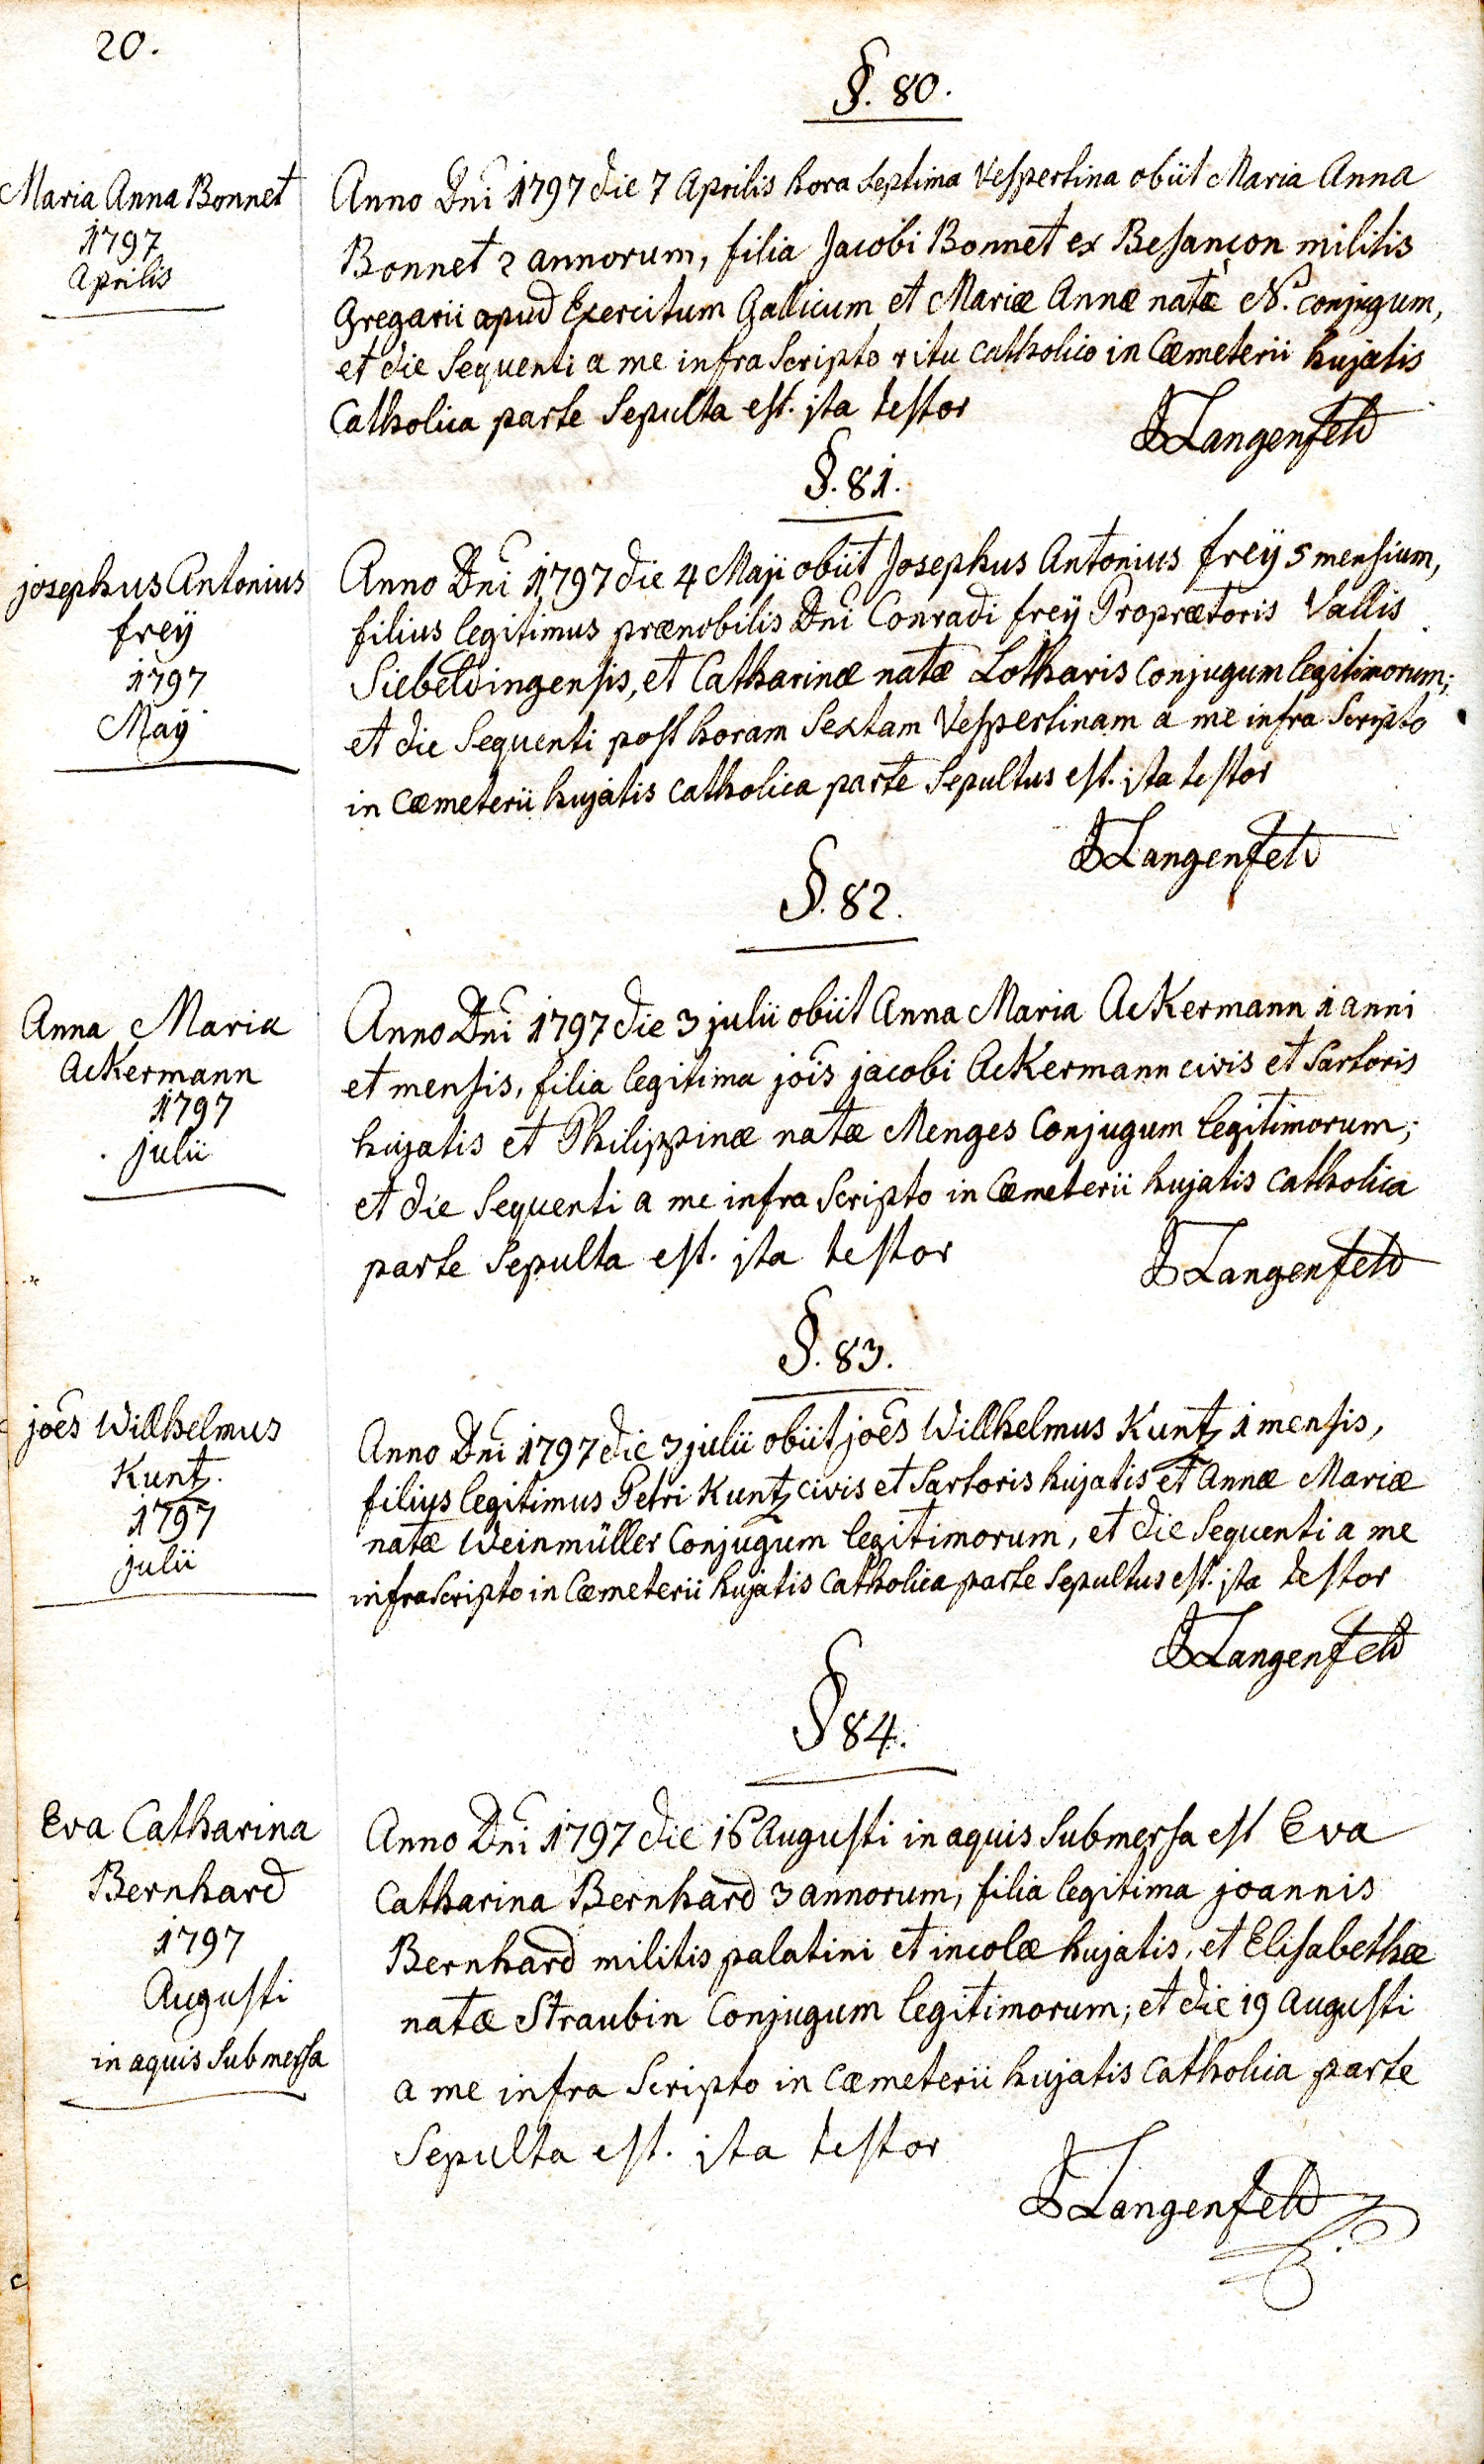 20.
§. 80.
Maria Anna Bonnet
1797
Aprilis
Anno Dni 1797 die 7 Aprilis hora septima Vespertina obiit Maria Anna
Bonnet 2 annorum, filia Jacobi Bonnet ex Besançon militis
Gregarii apud Exercitum Gallicum et Mariæ Annæ natæ N. conjugum,
et die sequenti a me infra scripto ritu catholico in Cœmeterii hujatis
Catholica parte sepulta est. ita testor
Langenfeld
§. 81.
josephus Antonius
frey
1797
May
Anno Dni 1797 die 4 Maji obiit Josephus Antonius frey 5 mensium,
filius legitimus prænobilis Dni Conradi frey Proprætoris Vallis
Siebeldingensis, et Catharinæ natæ Lotharis Conjugum legitimorum;
et die sequenti post horam sextam Vespertinam a me infra scripto
in cœmeterii hujatis catholica parte sepultus est. ita testor
Langenfeld
§. 82.
Anna Maria
Ackermann
1797
julii
Anno Dni 1797 die 3 julii obiit Anna Maria Ackermann 1 anni
et mensis, filia legitima jois jacobi Ackermann civis et sartoris
hujatis et Philippinæ natæ Menges Conjugum legitimorum;
et die sequenti a me infra scripto in Cœmeterii hujatis catholica
parte sepulta est. ita testor
Langenfeld
§. 83.
joes Willhelmus
Kuntz.
1797
julii
Anno Dni 1797 die 3 julii obiit joes Willhelmus Kuntz 1 mensis,
filius legitimus Petri Kuntz civis et sartoris hujatis et Annæ Mariæ
natæ Weinmüller Conjugum legitimorum, et die sequenti a me
infrascripto in Cœmeterii hujatis catholica parte sepultus est. ita testor
Langenfeld
§ 84.
Eva Catharina
Bernhard
1797
Augusti
in aquis submersa
Anno Dni 1797 die 16 Augusti in aquis submersa est Eva
Catharina Bernhard 3 annorum, filia legitima joannis
Bernhard militis palatini et incolæ hujatis, et Elisabethæ
natæ Straubin Conjugum legitimorum; et die 19 Augusti
a me infra scripto in cœmeterii hujatis catholica parte
sepulta est. ita testor
Langenfeld